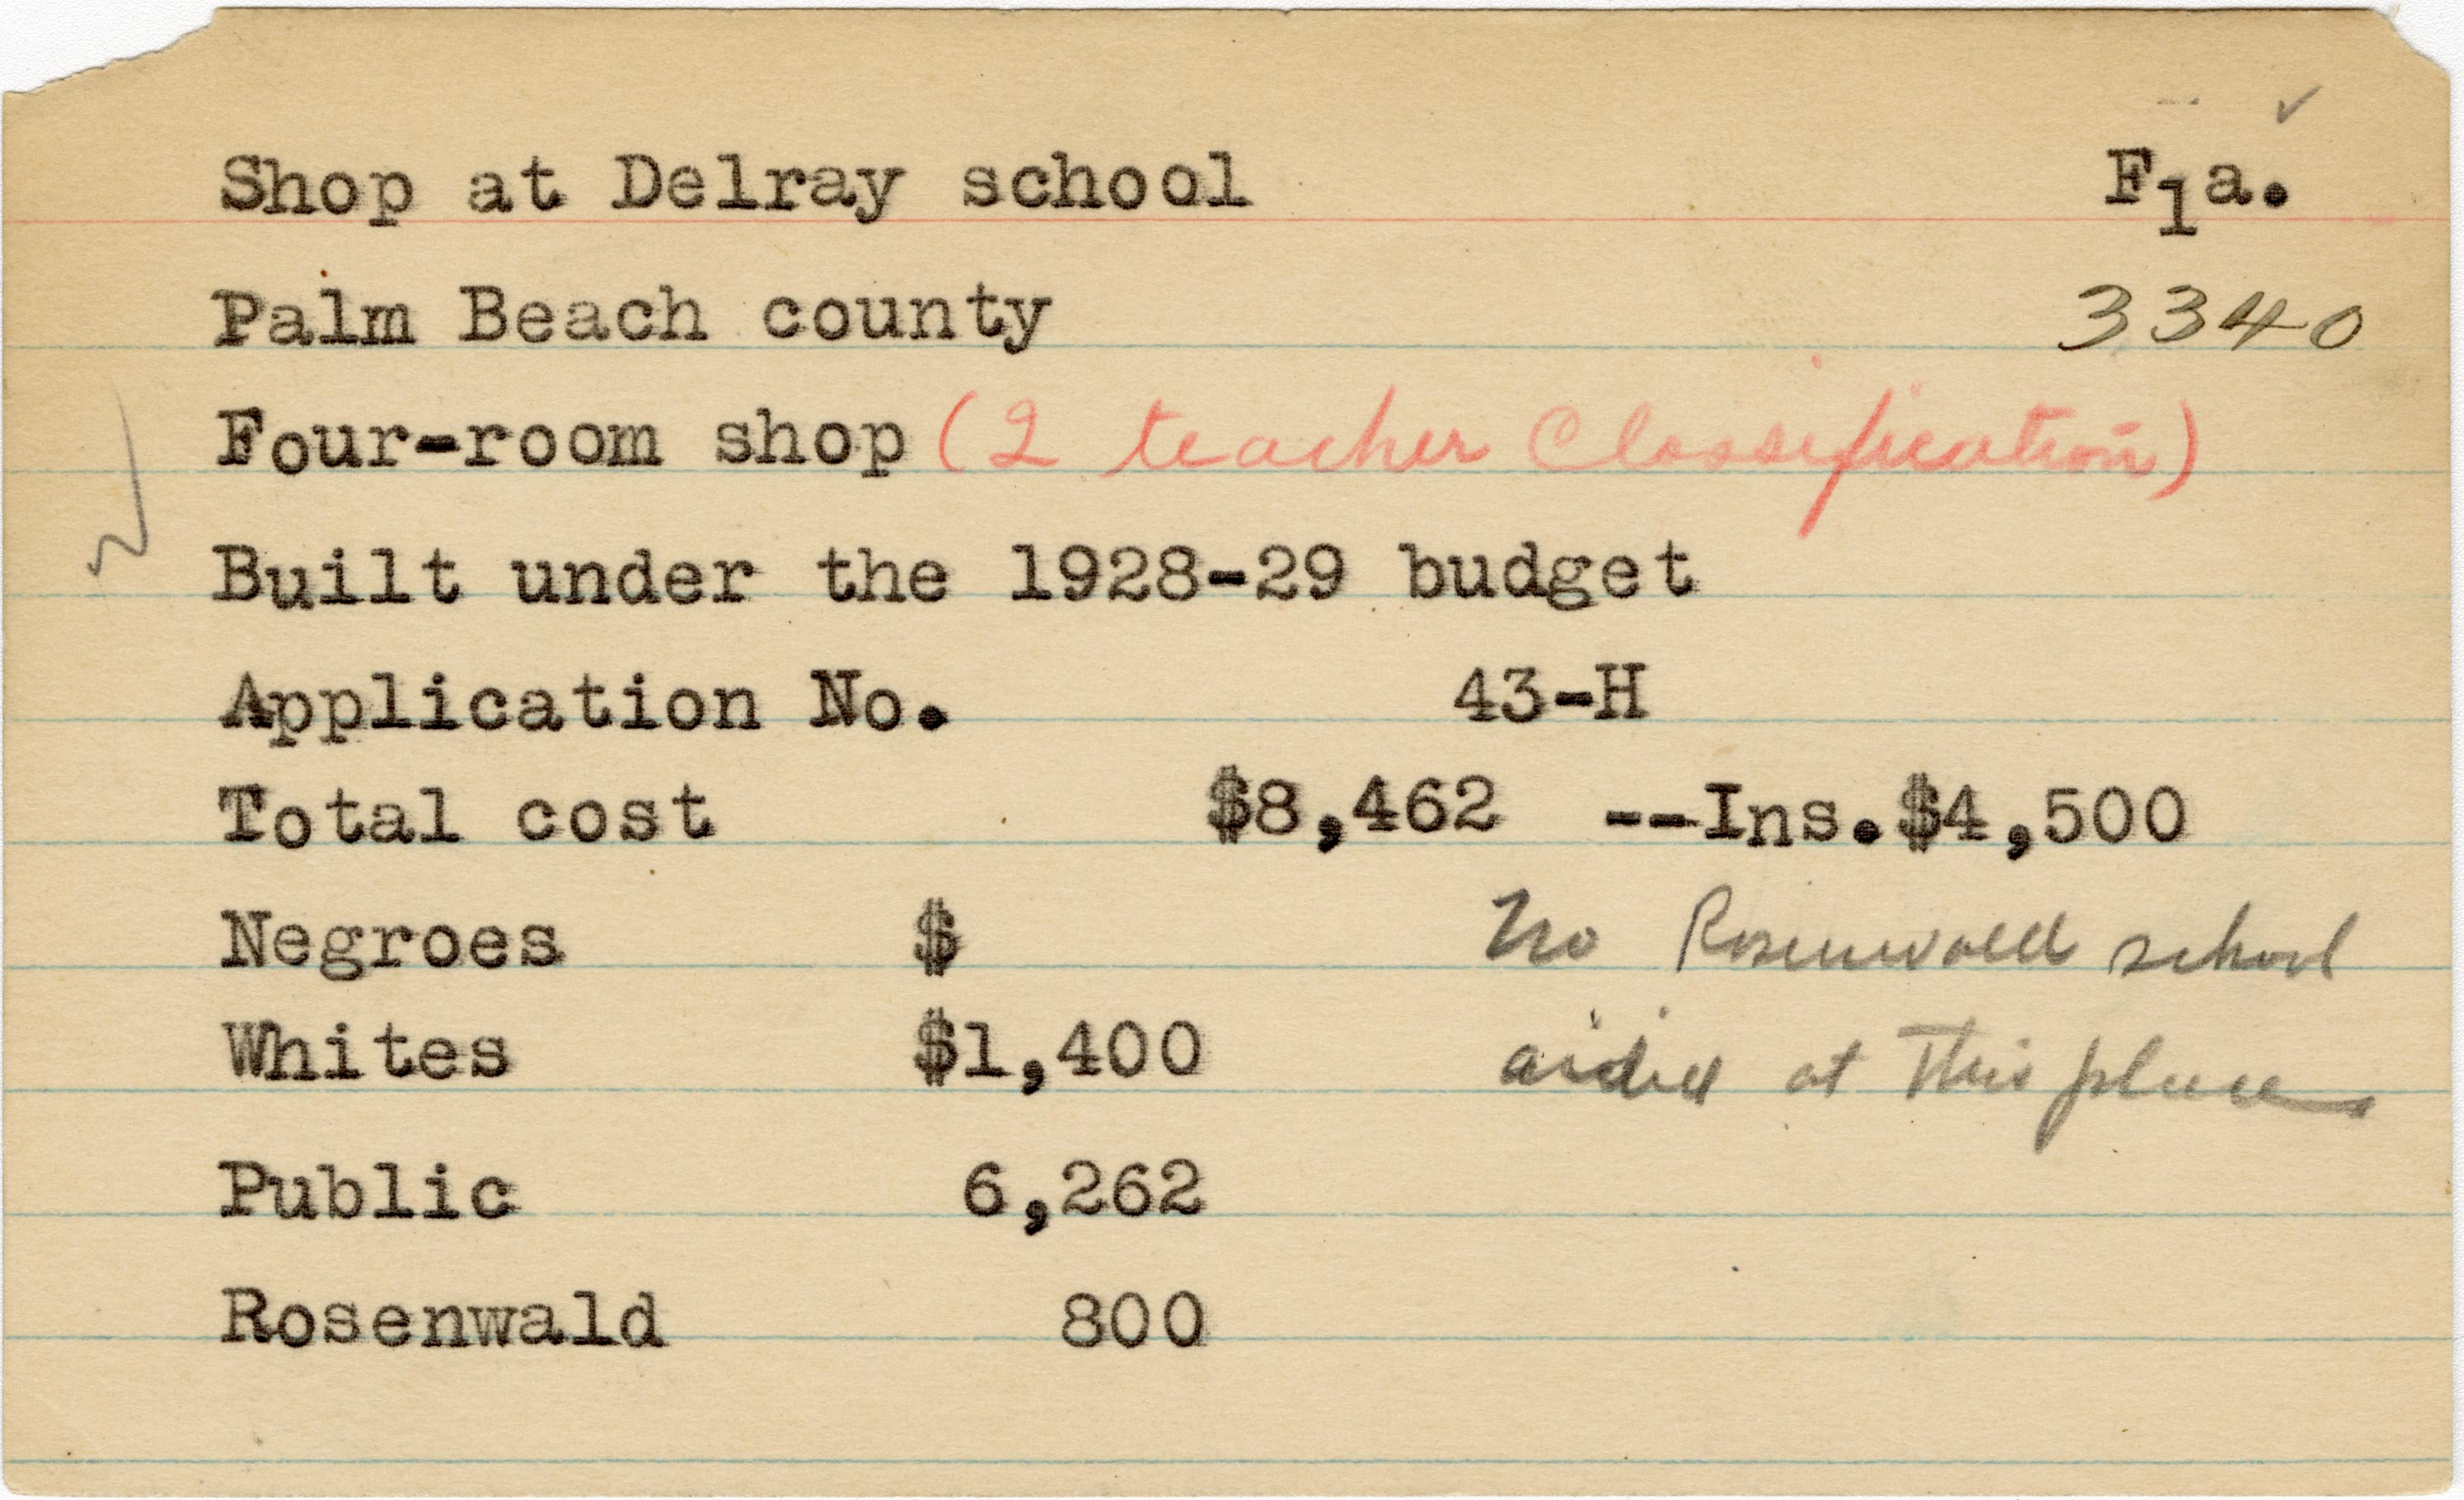 Shop at Delray school Fla.
Palm Beach county 3340
Four-room shop (2 teacher Classification)
Built under the 1928-29 budget
Application No. 43-H
Total cost $8,462 --Ins.$4,500
Negroes $ No Rosenwald school
Whites $1,400 aided at this place
Public 6,262
Rosenwald 800